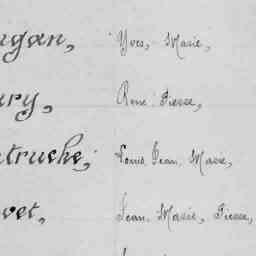 ugan, Yves, Marie,
ury, René Pierre,
truche, Louis, Jean, Marie,
vet, Jean, Marie, Pierre,